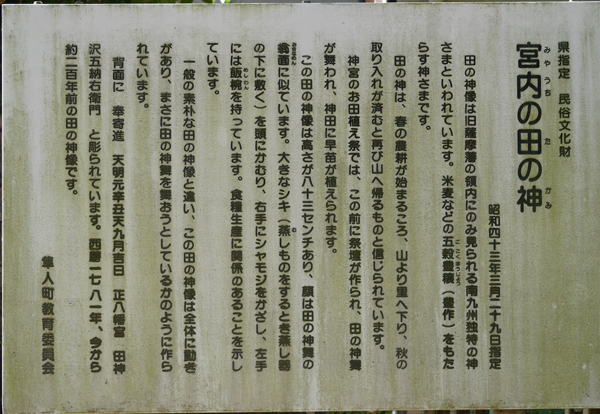 県指定　民俗文化財
宮内の田の神
みやうち　た　かみ
昭和四十三年三月二十九日指定
田の神像は旧薩摩藩の領内にのみ見られる南九州独特の神
さまといわれています。米麦などの五穀豊穣（豊作）をもた
らす神さまです。
田の神は、春の農耕が始まるころ、山より里へ下り、秋の
取り入れが済むと再び山へ帰るものと信じられています。
神宮のお田植え祭では、この前に祭壇が作られ、田の神舞
が舞われ、神田に早苗が植えられます。
この田の神像は高さが八十三センチあり、顔は田の神舞の
翁面に似ています。大きなシキ（蒸しものをするとき蒸し器
の下に敷く）を頭にかむり、右手にシャモジをかざし、左手
には飯椀を持っています。食糧生産に関係のあることを示し
ています。
一般の素朴な田の神像と違い、この田の神像は全体に動き
があり、まさに田の神舞を舞おうとしているかのように作ら
れています。
背面に　奉寄進　天明元辛丑天九月吉日　正八幡宮　田神
沢五納右衛門　と彫られています。西暦一七八一年、今から
約二百年前の田の神像です。
隼人町教育委員会